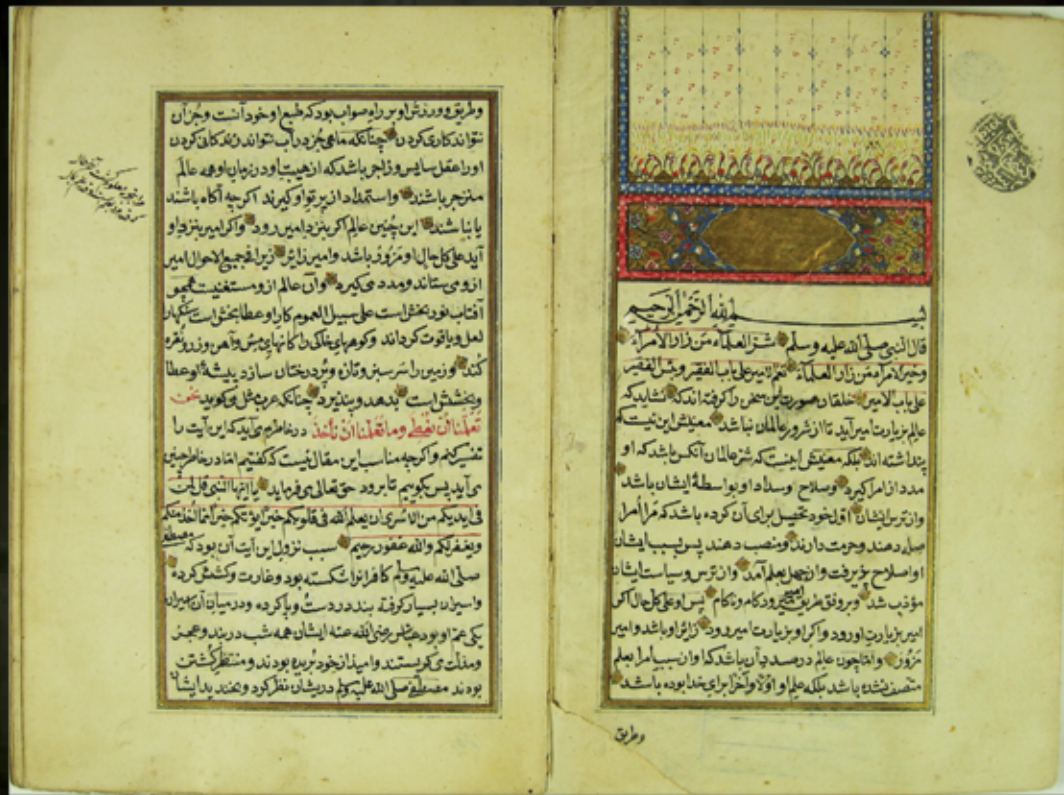 بسم الله الرحمن الرحیم
قال النبی صلی الله علیه وسلم شر العلماء من زار الامراء
وخیر الامراء من زار العلماء نعم الامیر علی باب الفقیر وبئس الفقیر
علی باب الامیر خلقان صورت این سخن را کرفته اند که نشاید که
عالم بزیارت امیر آید تا از شرور عالمان نباشد معنیش این نیست که
پنداشته اند بلکه معنیش اینست که شر عالمان آنکس باشد که او
مدد از امرا کیرد وصلاح وسداد او بواسطهٔ ایشان باشد
واز ترس ایشان اول خود تحصیل برای آن کرده باشد که مرا امرا
صله دهند وحرمت دارند ومنصب دهند پس بسبب ایشان
او اصلاح پذیرفت واز جهل بعلم آمد واز ترس وسیاست ایشان
مؤدب شد وبر وفق طریق میرود کام وناکام پس او علی کل حال اکر
امیر بزیارت او رود واکر او بزیارت امیر رود زائر او باشد وامیر
مزور واما چون عالم در صدد آن باشد که او از سبب امرا بعلم
متصف نشده باشد بلکه علم او اولا وآخرا برای خدا بوده باشد
وطریق
وطریق وورزش او بر راه صواب بود که طبع او خود آنست وجز آن
نتواند کاری کردن چنانکه ماهی جز در آب نتواند زندکانی کردن
اورا عقل سایس وزاجر باشد که از هیبت او در زمان او همه عالم
منزجر باشند واستمداد از پرتو او کیرند اکرچه آکاه باشند
یا نباشند این چنین عالم اکر بنزد امیر رود واکر امیر بنزد او
آید علی کل حال او مزور باشد وامیر زائر زیرا فجمیع الاحوال امیر
ازو می ستاند ومدد می کیرد وآن عالم ازو مستغنیست همچو
آفتاب نور بخش است علی سبیل العموم کار او عطا بخش است سنکهارا
لعل ویاقوت کرداند وکوههای خاکی را کانهای مس وآهن وزر ونقره
کند وزمین را سر سبز وتازه وبر درختان سازد پیشهٔ او عطا
وبخشش است بدهد وپنذیرد چنانکه عرب مثل می کوید نحن
تعلمنا ان نعطی وما تعلمنا ان نأخذ در خاطرم می آید که این آیت را
تفسیر کنم واکرچه مناسب این مقال نیست که کفتیم اما در خاطر چنین
می آید پس بکوییم تا برود حق تعالی می فرماید یا ایها النبی قل لمن
فی ایدیکم من الاسری ان یعلم الله فی قلوبکم خیرا یؤتکم خیرا مما اخذ منکم
ویغفر لکم والله غفور رحیم سبب نزول این آیت آن بود که مصطفی
صلی الله علیه وسلم کافرانرا شکسته بود وغارت وکشش کرده
واسیران بسیار کرفته بند در دست وپا کرده ودر میان آن اسیران
یکی عم او بود عباس رضی الله عنه ایشان همه شب در بند وعجز
ومذلت می کریستند وامید از خود بریده بودند ومنتظر کشتن
بودند مصطفی صلی الله علیه وسلم در یشان نظر کرد وبخندید ایشان